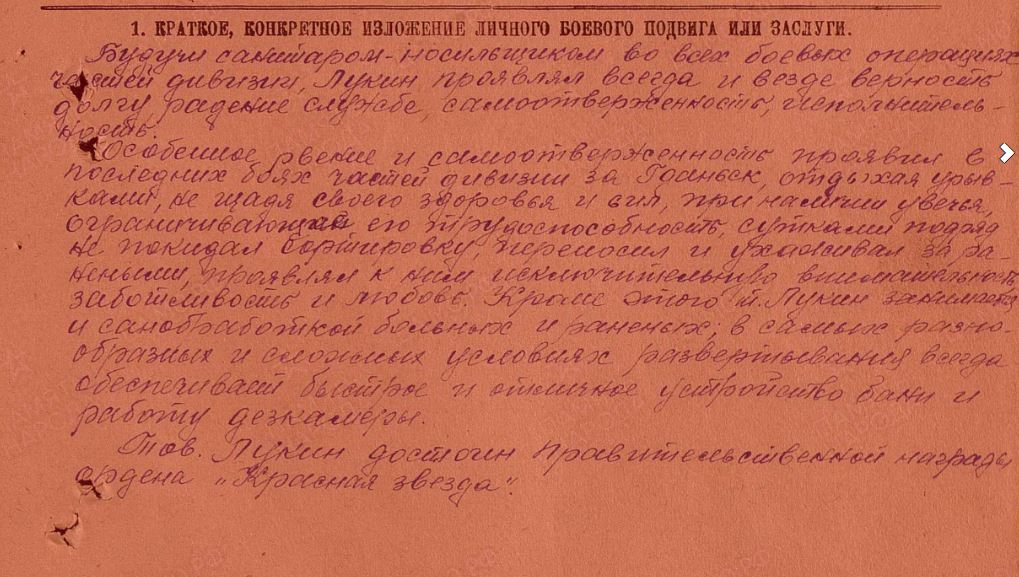 1. КРАТКОЕ, КОНКРЕТНОЕ ИЗЛОЖЕНИЕ ЛИЧНОГО БОЕВОГО ПОДВИГА ИЛИ ЗАСЛУГИ.
Будучи санитаром-носильщиком во всех боевых операциях
частей дивизии, Лукин проявлял всегда и везде верность
долгу, радение службе, самоотверженность, исполнитель-
ность.
Особенное рвение и самоотверженность проявил в
последних боях частей дивизии за Гданьск, отдыхая урыв-
ками, не щадя своего здоровья и сил, при наличии увечья,
ограничивающей его трудоспособность, сутками подряд
не покидал сортировку, переносил и ухаживал за ра-
неными, проявлял к ним исключительную внимательность,
заботливость и любовь. Кроме этого т. Лукин занимается
и санобработкой больных и раненых; в самых разно-
образных и сложных условиях развертывания всегда
обеспечивает быстрое и отличное устройство бани и
работу дезкамеры.
Тов. Лукин достоин правительственной награды
ордена „Красная звезда".